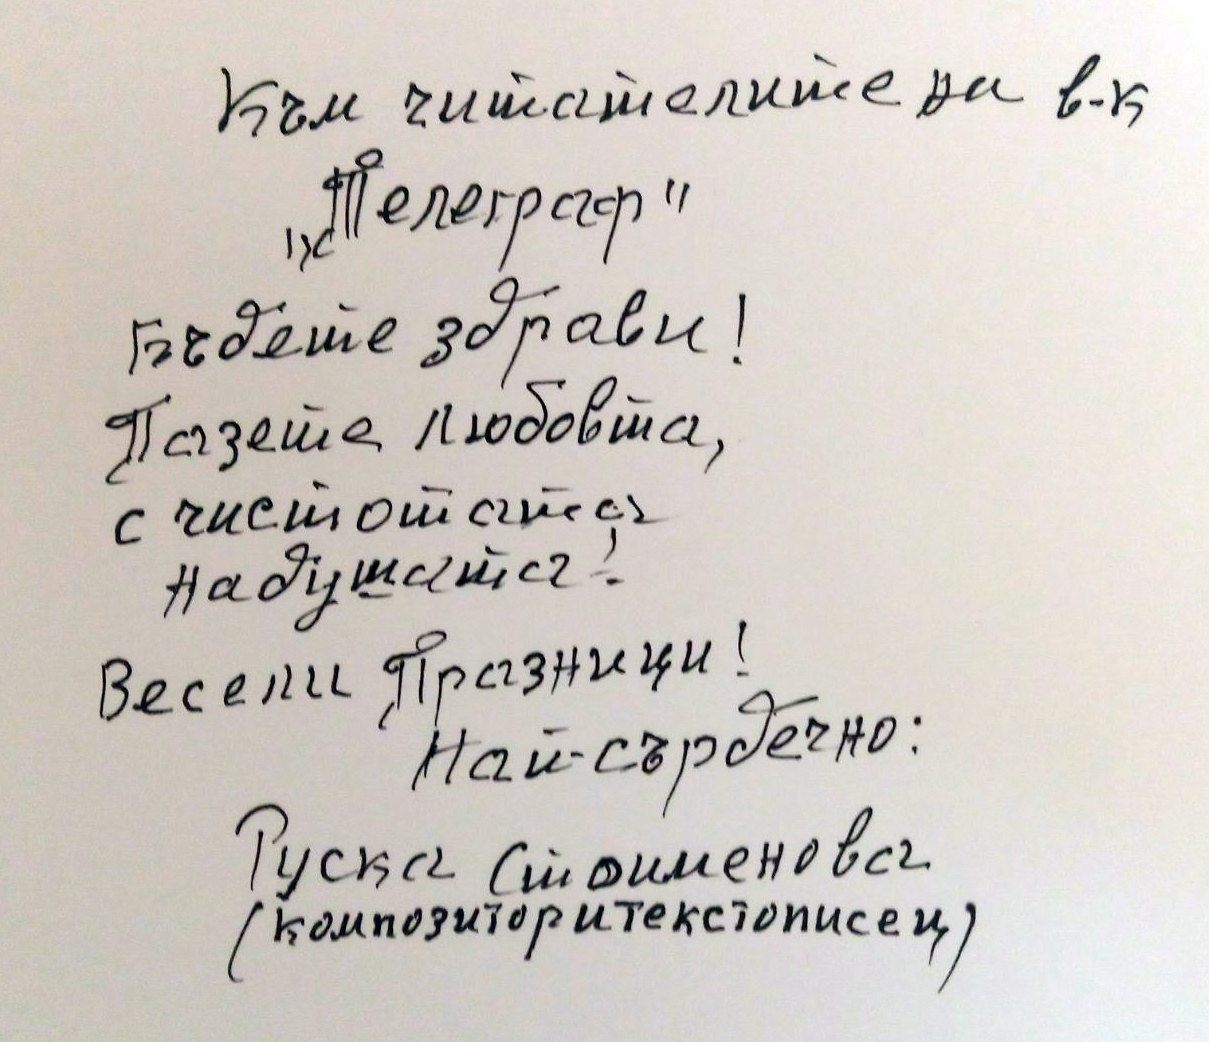 Към читателите на в-к
„Телеграф"
Бъдете здрави!
Пазете любовта,
с чистотата
на душата!
Весели Празници!
Най-сърдечно:
Руска Стоименова
(композитор и текстописец)